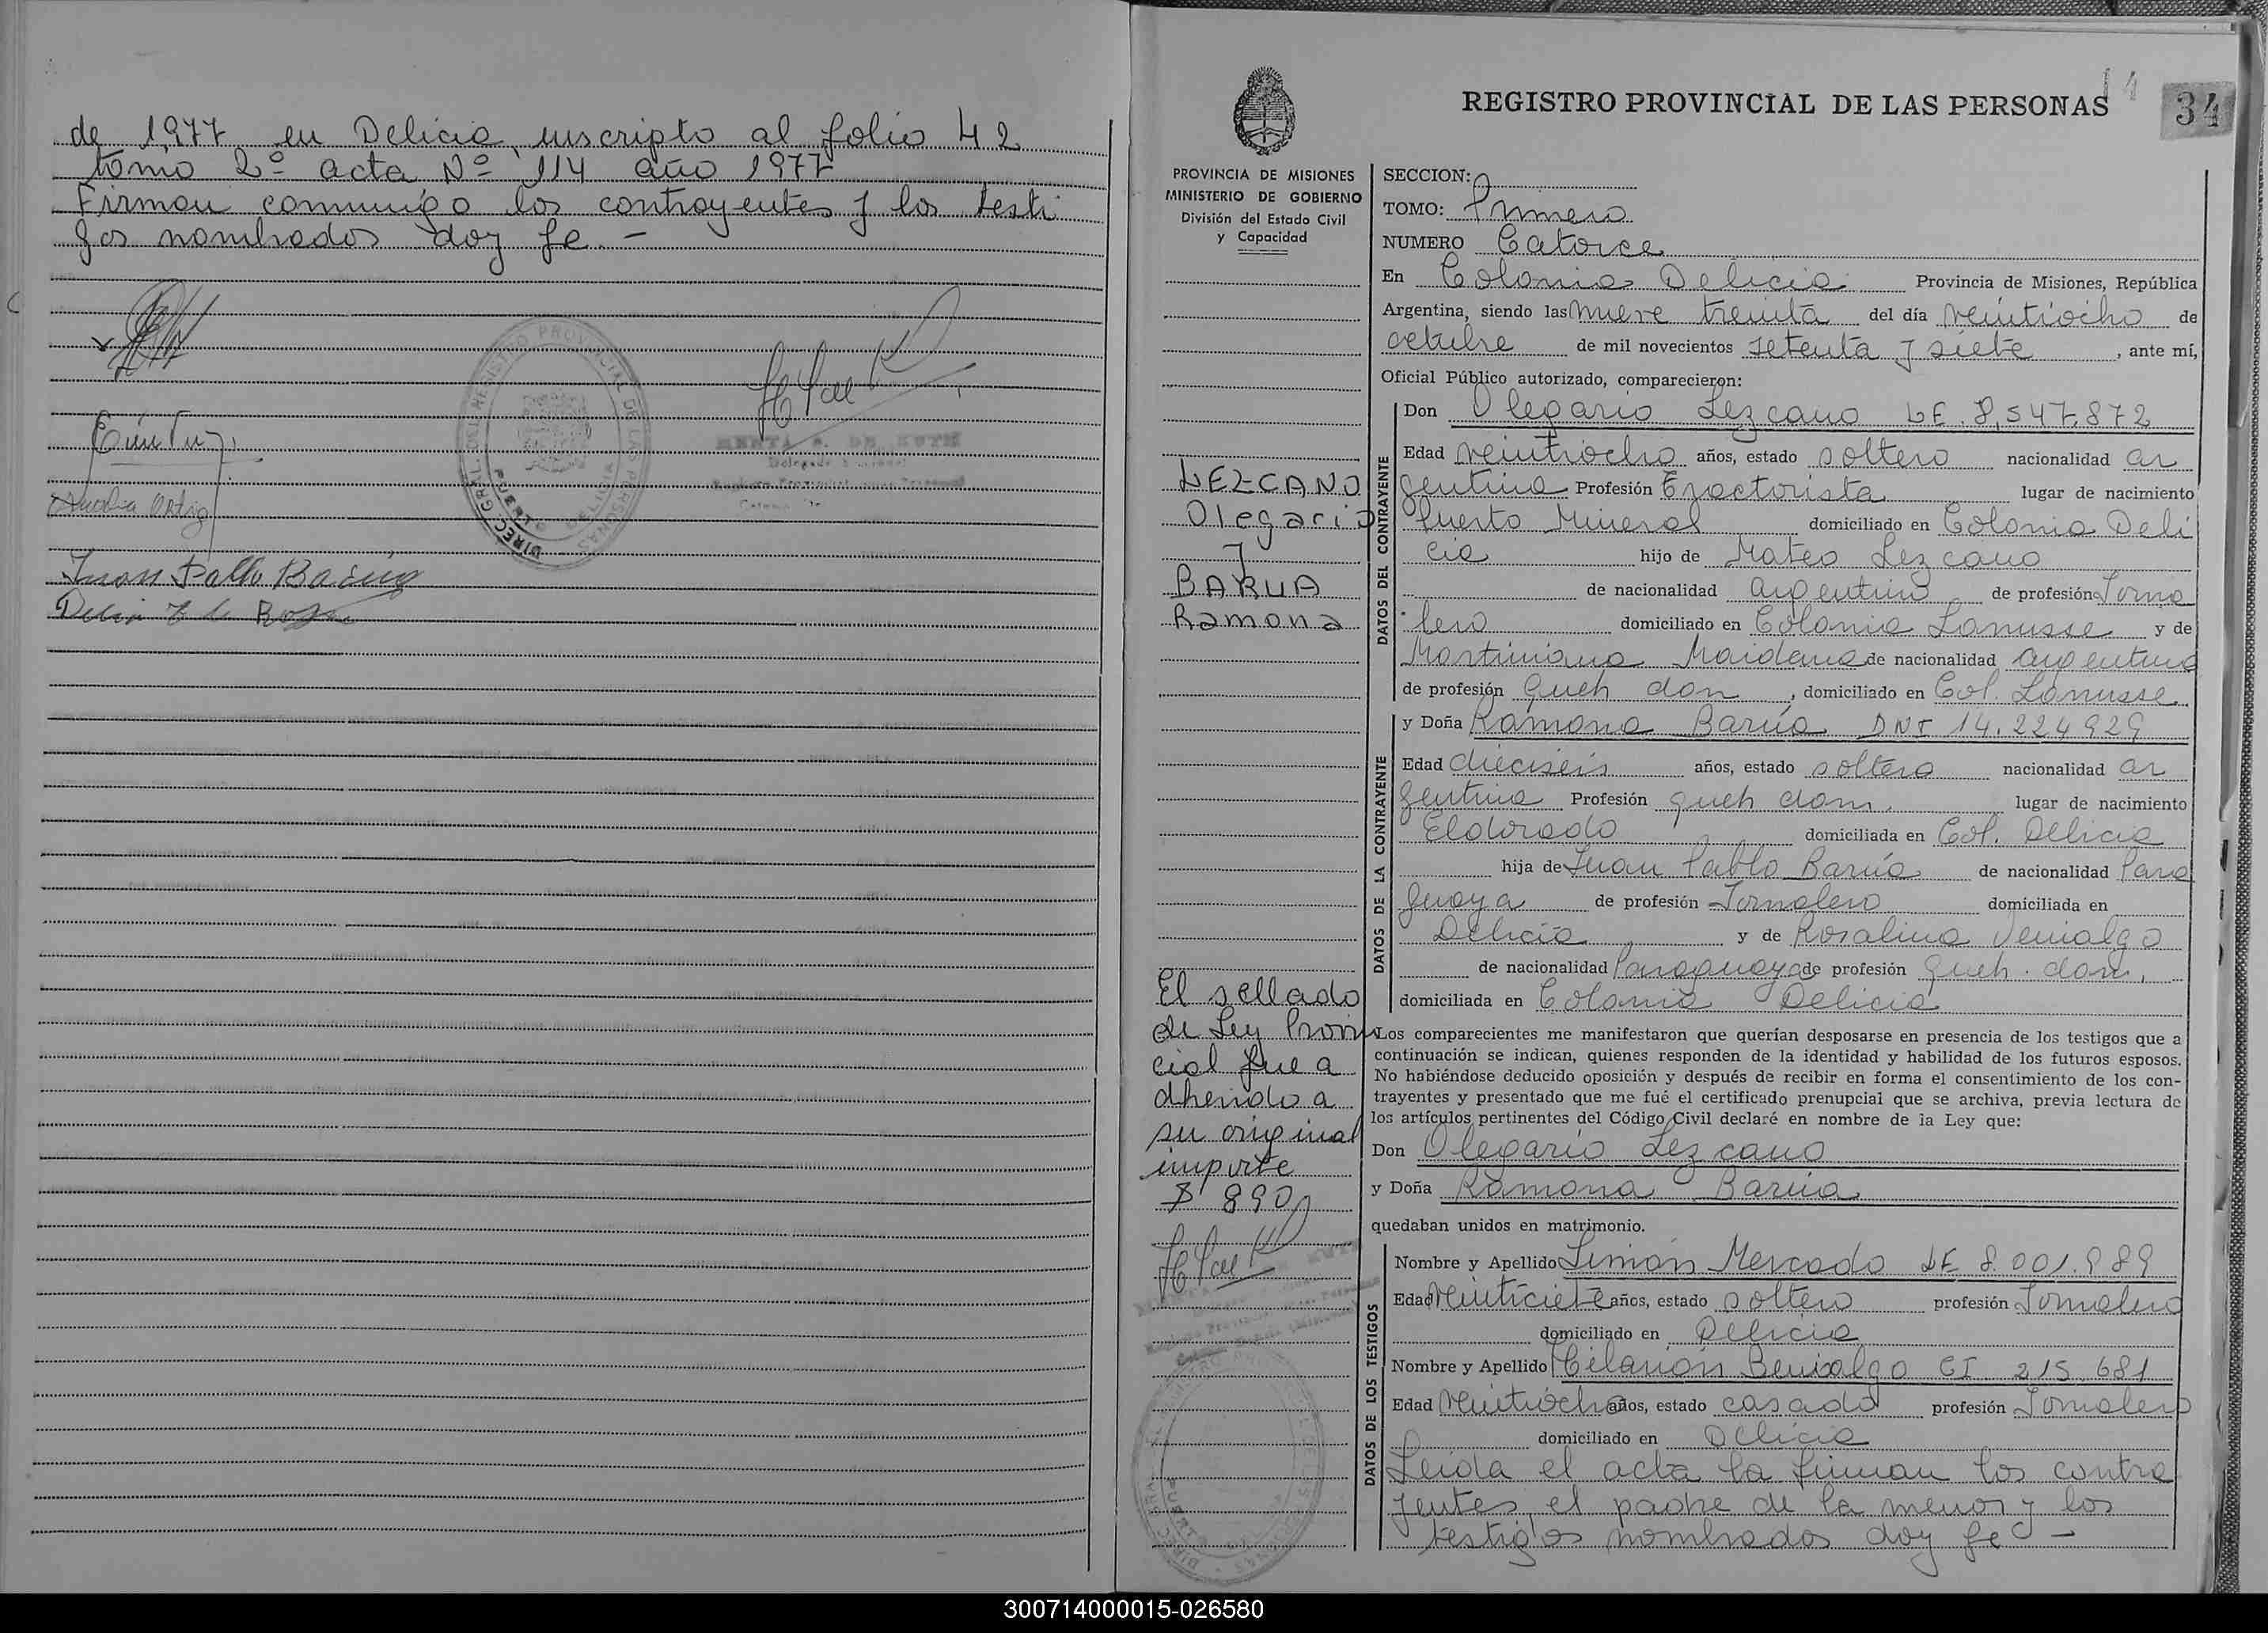 de 1977 en Delicia, inscripto al folio 42
tomo 2º acta Nº 114 año 1977
Firman conmigo los contrayentes y los testi
gos nombrados doy fe. -
DIREC. GRAL. DEL REGISTRO PROVINCIAL DE LAS PERSONAS
Juan Pablo Barúa
14
34
REGISTRO PROVINCIAL DE LAS PERSONAS
PROVINCIA DE MISIONES
MINISTERIO DE GOBIERNO
División del Estado Civil
y Capacidad
LEZCANO
Olegario
y
BARUA
Ramona
El sellado
de Ley Provin
cial fue a
dherido a
su original
importe
$ 890
SECCION:
TOMO: Primero
NUMERO Catorce
En Colonia Delicia Provincia de Misiones, República
Argentina, siendo las nueve treinta del día veintiocho de
octubre de mil novecientos setenta y siete, ante mí,
Oficial Público autorizado, comparecieron:
DATOS DEL CONTRAYENTE
Don Olegario Lezcano LE. 8,547,872
Edad veintiocho años, estado soltero nacionalidad ar
gentina Profesión Tractorista lugar de nacimiento
Puerto Mineral domiciliado en Colonia Deli
cia hijo de Mateo Lezcano
de nacionalidad argentino de profesión Jorna
lero domiciliado en Colonia Lanusse y de
Martiniana Maidana de nacionalidad argentina
de profesión queh dom, domiciliado en Col. Lanusse
DATOS DE LA CONTRAYENTE
y Doña Ramona Barúa DNI 14.224929
Edad dieciseis años, estado soltera nacionalidad ar
gentina Profesión queh dom. lugar de nacimiento
Eldorado domiciliada en Col. Delicia
hija de Juan Pablo Barúa de nacionalidad Para
guaya de profesión Jornalero domiciliada en
Delicia y de Rosalina Venialgo
de nacionalidad Paraguaya de profesión queh. dom,
domiciliada en Colonia Delicia
Los comparecientes me manifestaron que querían desposarse en presencia de los testigos que a
continuación se indican, quienes responden de la identidad y habilidad de los futuros esposos.
No habiéndose deducido oposición y después de recibir en forma el consentimiento de los con-
trayentes y presentado que me fué el certificado prenupcial que se archiva, previa lectura de
los artículos pertinentes del Código Civil declaré en nombre de la Ley que:
Don Olegario Lezcano
y Doña Ramona Barúa
quedaban unidos en matrimonio.
DATOS DE LOS TESTIGOS
Nombre y Apellido Simón Mercado LE 8.001.989
Edad veinticiete años, estado soltero profesión Jornalero
domiciliado en Delicia
Nombre y Apellido Hilarión Benialgo CI 215.681
Edad veintiocho años, estado casado profesión Jornalero
domiciliado en Delicia
Leida el acta la firman los contra
yentes, el padre de la menor y los
testigos nombrados doy fe -
300714000015-026580